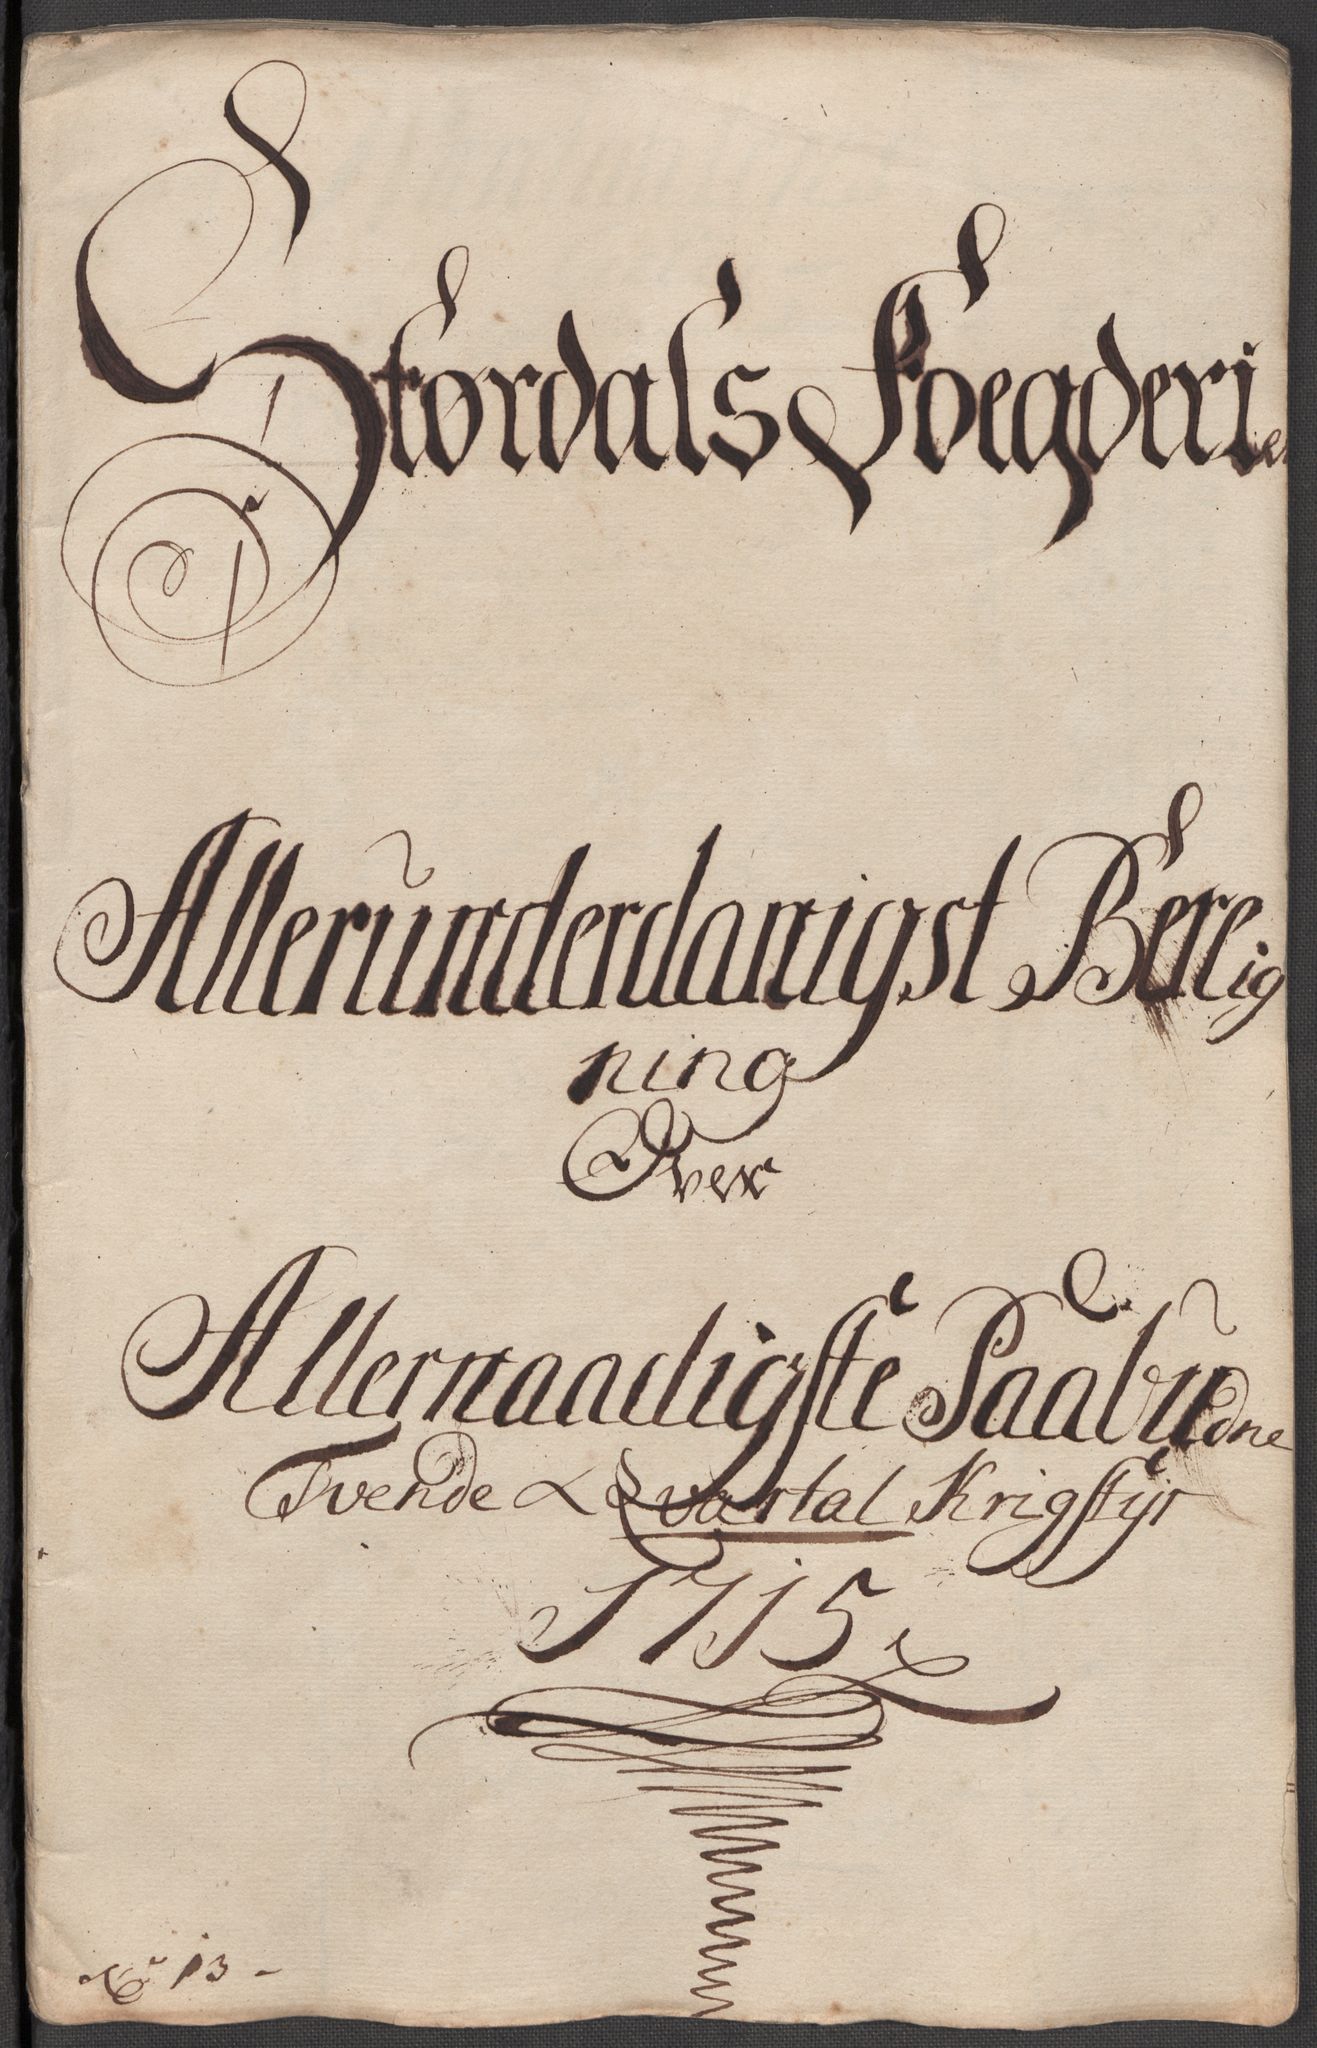 Størdals Foegderie
Allerunderdanigst Bereig
ning
Over
Allernaadigste Paabudne
Tvende Qvartal Krigstyr
1715
No 13 -